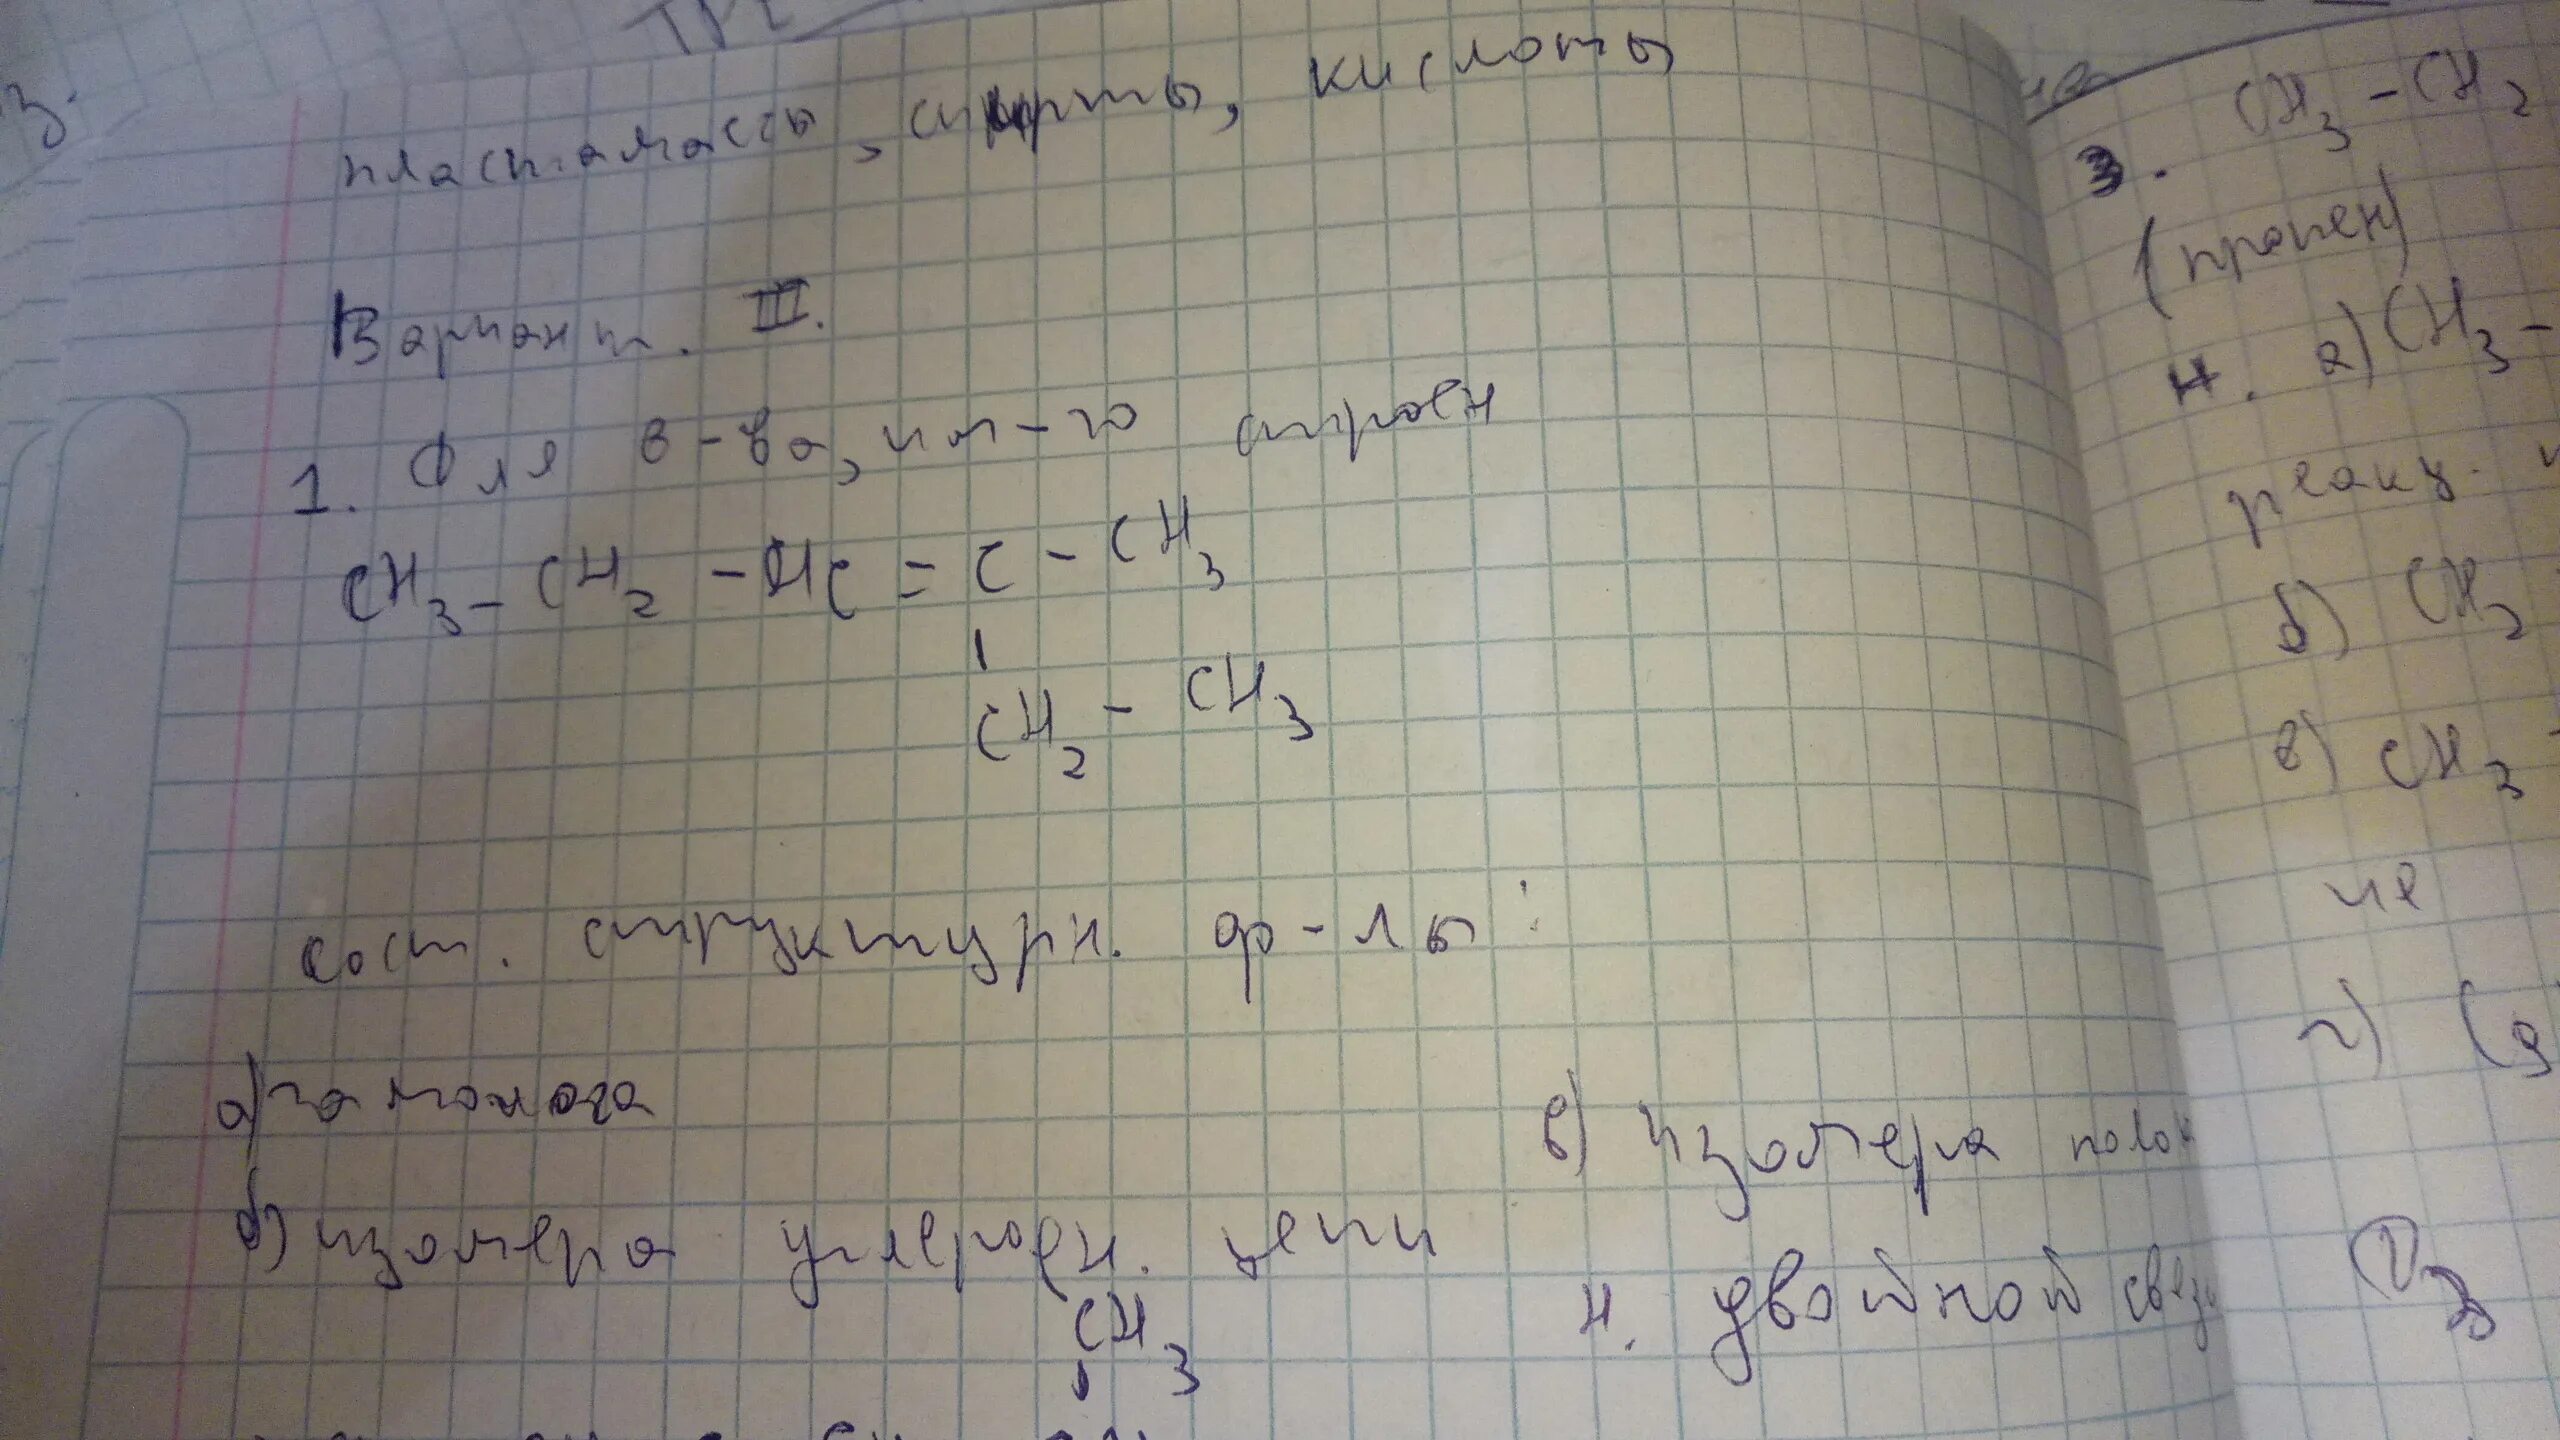 пластмассы, спирты, кислоты
Вариант. III.
1. Для в-ва, им-го строен
CH3 - CH2 - HC = C - CH3
CH2 - CH3
сост. структурн. ф-лы:
а) гомолога
б) изомера углеродн. цепи
CH3
в) изомера полож
н. двойной связи
3. CH3 - CH2
(пропен)
а) CH3 -
реакц.
б) CH2
в) CH3
не
г)